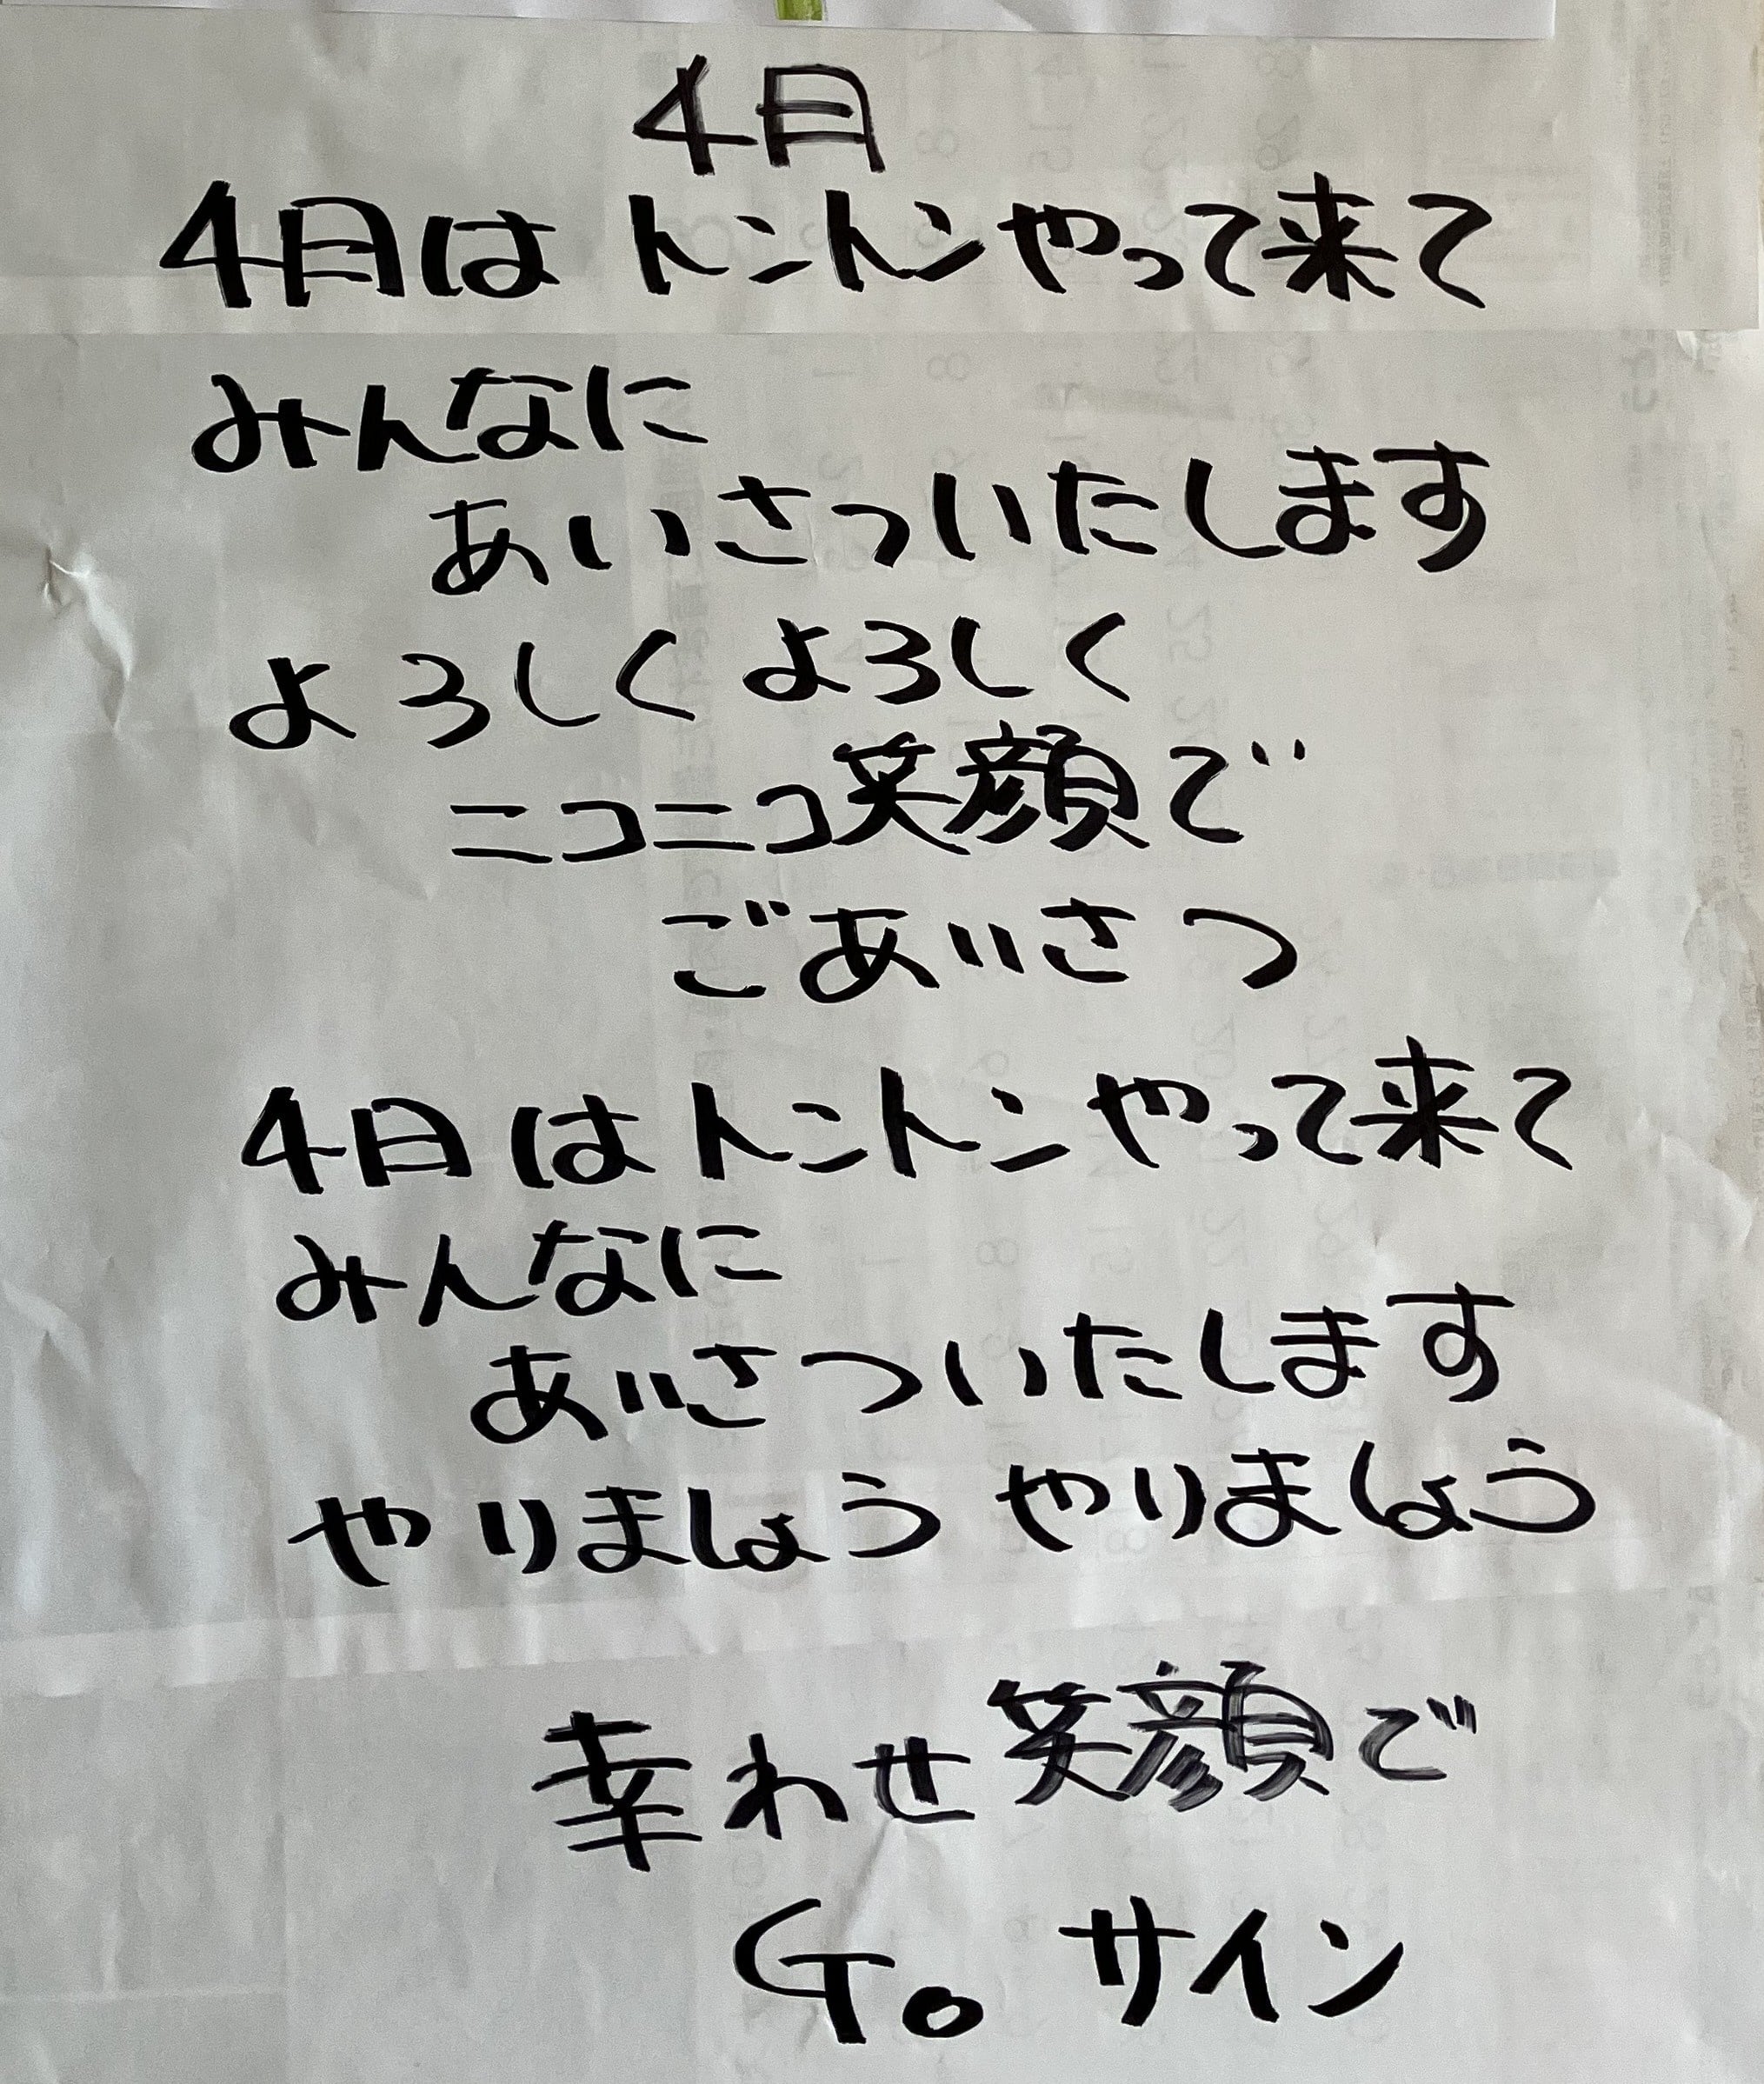 4月
4月は トントンやって来て
みんなに
あいさついたします
よろしく よろしく
ニコニコ笑顔で
ごあいさつ
4月はトントンやって来て
みんなに
あいさついたします
やりましょう やりましょう
幸わせ笑顔で
Go サイン